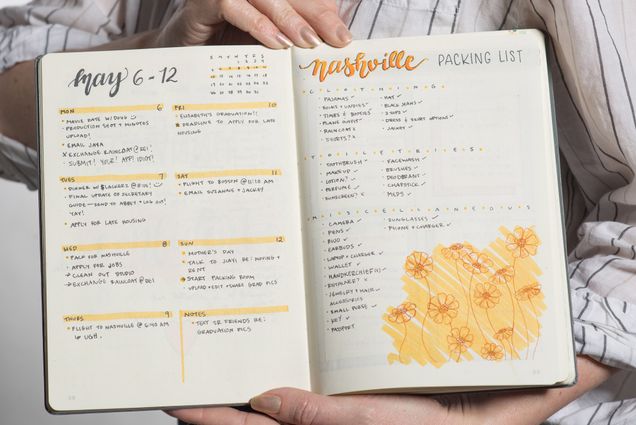 may 6-12
S M T W T F S
MON 6
• MOVIE DATE W/ DOUG
• PRODUCTION DEPT + MINUTES
UPLOAD!
• EMAIL JARA
X EXCHANGE RAINCOAT @ REI!
• SUBMIT! YOUR! APP! IDIOT!
TUES 7
• DINNER W/ SLACKERZ @ 8!
• FINAL UPDATE OF SECRETARY
GUIDE—SEND TO ABBEY + LOG OUT!
'YAY!
• APPLY FOR LATE HOUSING
WED 8
• PACK FOR NASHVILLE
• APPLY FOR JOBS
→ CLEAN OUT STUDIO
→ EXCHANGE RAINCOAT @ REI
THURS 9
• FLIGHT TO NASHVILLE @ 6:40 AM
UGH.
FRI 10
• ELISABETH'S GRADUATION!!
DEADLINE TO APPLY FOR LATE
HOUSING
SAT 11
• FLIGHT TO BOSTON @ 11:10 AM
• EMAIL SUZANNE + JACKEY
SUN 12
• MOTHER'S DAY
• TALK TO JIAYI RE: MOVING +
RENT
START PACKING ROOM
• UPLOAD + EDIT + SHARE GRAD PICS
NOTES
• TEXT SR FRIENDS RE:
GRADUATION PICS
nashville PACKING LIST
CLOTHING
• PAJAMAS ✓
• SOCKS + UNDIES ✓
• TIGHTS & BOOTIES ✓
• PLANE OUTFIT ✓
• RAINCOAT X
• SHORTS? X
• HAT ✓
• BLACK JEANS ✓
• 3 TOPS ✓
• DRESS & SKIRT OPTIONS ✓
• JACKET ✓
TOILETRIES
• TOOTHBRUSH ✓
• MAKEUP ✓
• LOTION ✓
• PERFUME ✓
• SUNSCREEN? X
• FACEWASH ✓
• BRUSHES ✓
• DEODORANT ✓
• CHAPSTICK ✓
• MEDS ✓
MISCELLANEOUS
• CAMERA ✓
• PENS ✓
• BUJO ✓
• EARBUDS ✓
• LAPTOP + CHARGER ✓
• WALLET ✓
• HANDKERCHIEF(S) ✓
• EXTPLORER? X
• JEWELRY + HAIR ✓
ACCESSORIES
• SMALL PURSE ✓
• KEY ✓
• PASSPORT
• SUNGLASSES ✓
• PHONE + CHARGER ✓